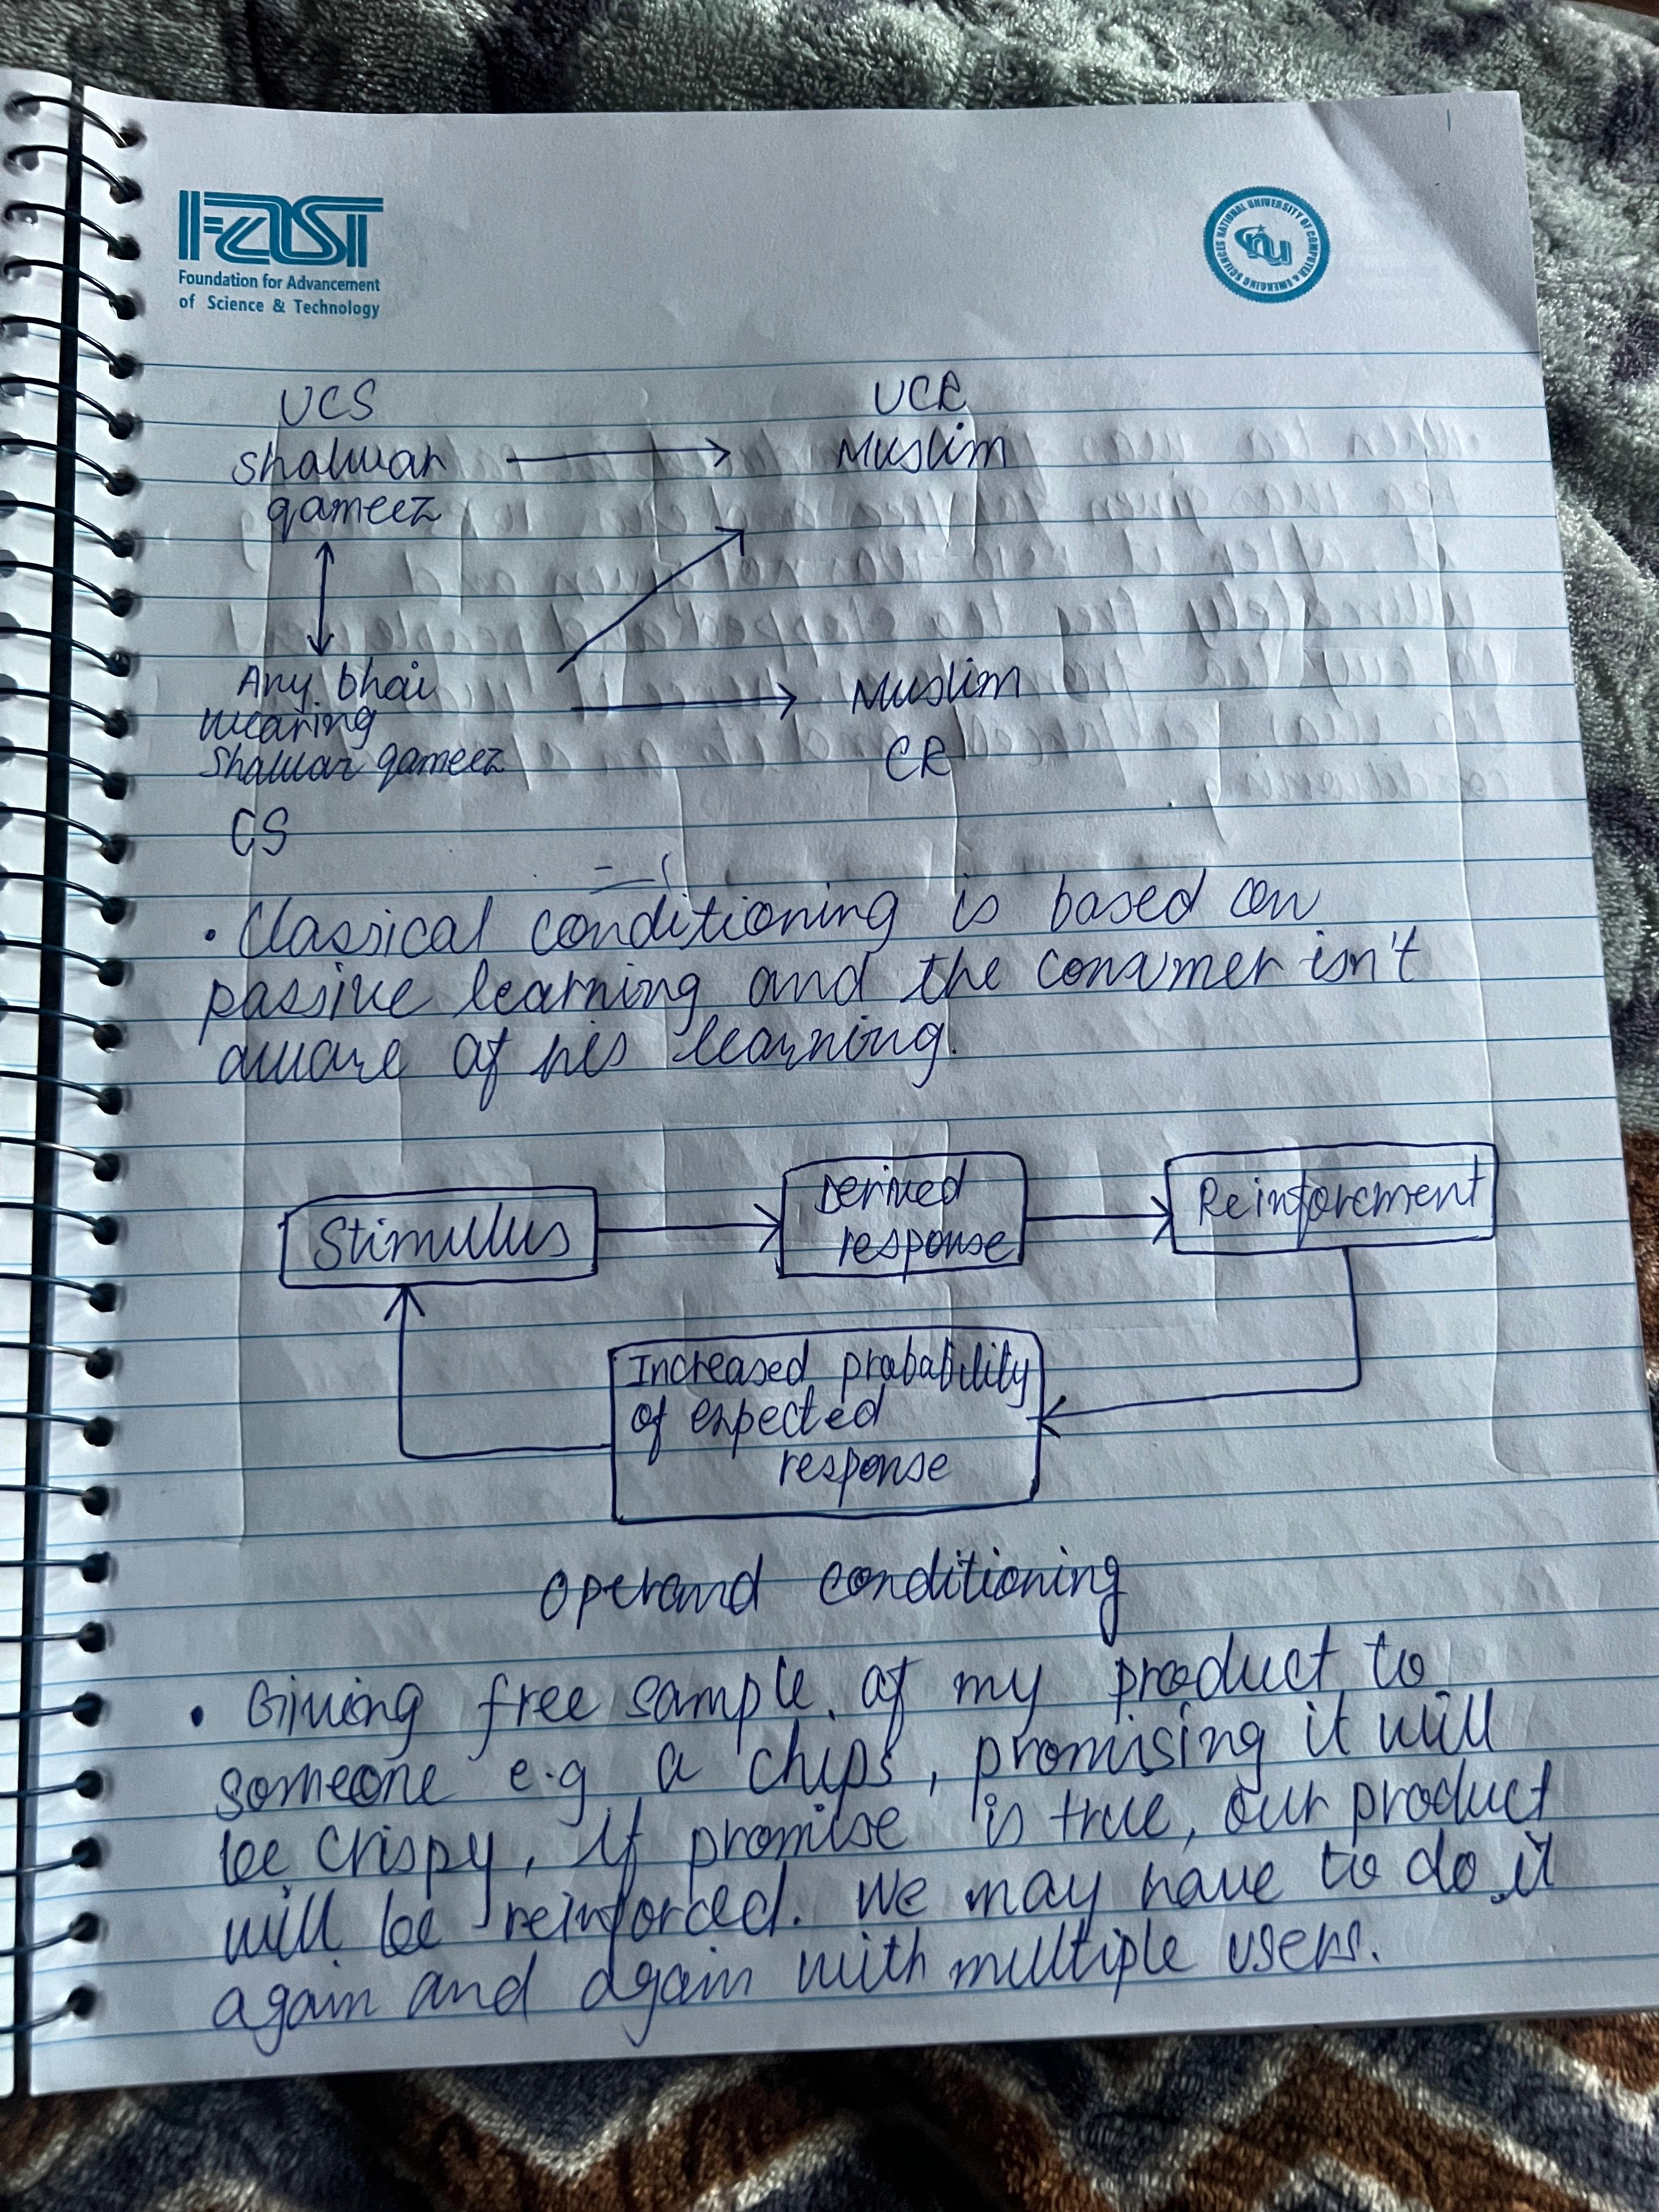 FAST
Foundation for Advancement
of Science & Technology
NATIONAL UNIVERSITY OF COMPUTER & EMERGING SCIENCES
nu
UCS UCR
Shalwar Muslim
qameez
Any bhai Muslim
wearing
Shalwar qameez CR
CS
• Classical conditioning is based on
passive learning and the consumer isn't
aware of his learning.
Stimullus
Derived
response
Reinforcement
Increased probability
of expected
response
Operand conditioning
• Giving free sample of my product to
someone e.g a chips, promising it will
be crispy, If promise is true, our product
will be reinforced. We may have to do it
again and again with multiple users.